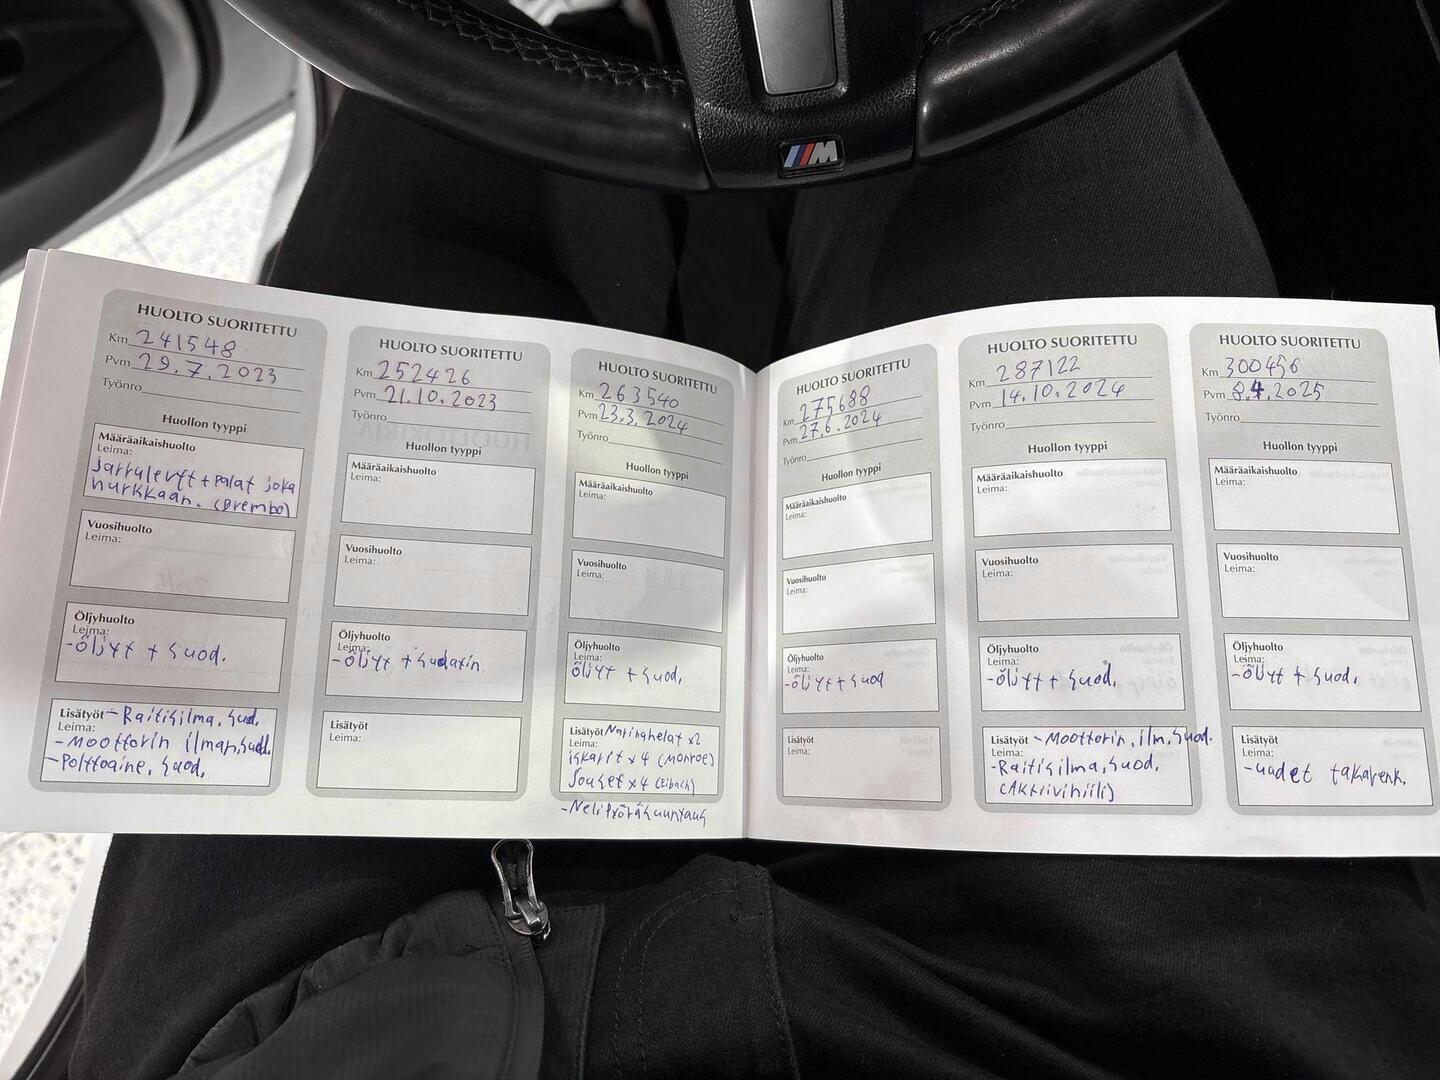 M
HUOLTO SUORITETTU
Km 241548
Pvm 29.7.2023
Työnro
Huollon tyyppi
Määräaikaishuolto
Leima:
Jarrulevyt + palat joka
nurkkaan. (Brembo)
Vuosihuolto
Leima:
Öljyhuolto
Leima:
-öljyt + suod.
Lisätyöt - Raitisilma, suod.
Leima:
-Moottorin ilman,suod.
-Polttoaine, suod.
HUOLTO SUORITETTU
Km 252426
Pvm 21.10.2023
Työnro
Huollon tyyppi
Määräaikaishuolto
Leima:
Vuosihuolto
Leima:
Öljyhuolto
Leima:
-öljyt + sudatin.
Lisätyöt
Leima:
HUOLTO SUORITETTU
Km 263540
Pvm 23.3.2024
Työnro
Huollon tyyppi
Määräaikaishuolto
Leima:
Vuosihuolto
Leima:
Öljyhuolto
Leima:
öljyt + suod.
Lisätyöt Navinghelat x2
Leima:
iskarit x 4 (Monroe)
Jouset x 4 (Eibach)
-Nelipyöräsuuntaus
HUOLTO SUORITETTU
Km 275688
Pvm 27.6.2024
Työnro
Huollon tyyppi
Määräaikaishuolto
Leima:
Vuosihuolto
Leima:
Öljyhuolto
Leima:
-öljyt + suod
Lisätyöt
Leima:
HUOLTO SUORITETTU
Km 287122
Pvm 14.10.2024
Työnro
Huollon tyyppi
Määräaikaishuolto
Leima:
Vuosihuolto
Leima:
Öljyhuolto
Leima:
-öljyt + suod.
Lisätyöt - Moottorin, ilm, suod.
Leima:
-Raitisilma, suod.
(Aktiivihiili)
HUOLTO SUORITETTU
Km 300456
Pvm 8.4.2025
Työnro
Huollon tyyppi
Määräaikaishuolto
Leima:
Vuosihuolto
Leima:
Öljyhuolto
Leima:
-öljyt + suod.
Lisätyöt
Leima:
-uudet takarenk.